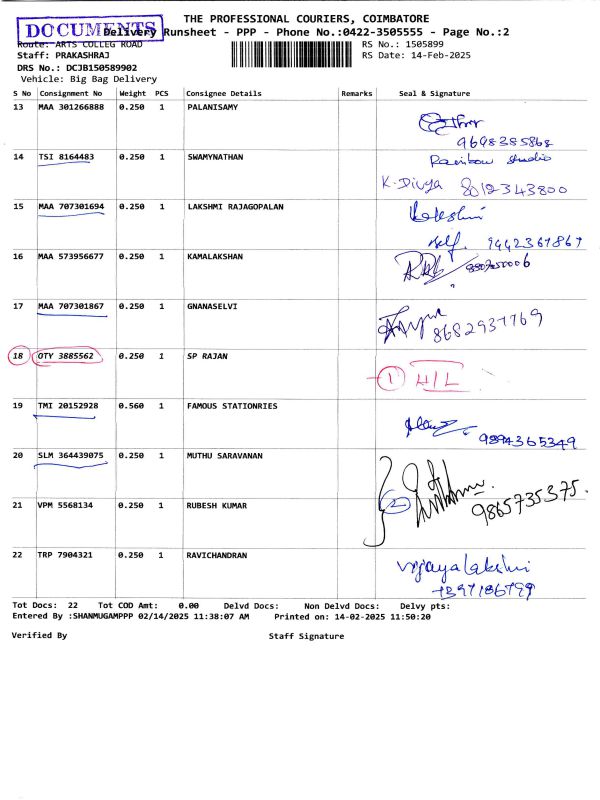 THE PROFESSIONAL COURIERS, COIMBATORE
DOCUMENTS
Delivery Runsheet - PPP - Phone No.:0422-3505555 - Page No.:2
Route: ARTS COLLEG ROAD RS No.: 1505899
Staff: PRAKASHRAJ RS Date: 14-Feb-2025
DRS No.: DCJB150589902
Vehicle: Big Bag Delivery
S No Consignment No Weight PCS Consignee Details Remarks Seal & Signature
13 MAA 301266888 0.250 1 PALANISAMY
9698385868
14 TSI 8164483 0.250 1 SWAMYNATHAN Rainbow studio
K. Divya 8012343800
15 MAA 707301694 0.250 1 LAKSHMI RAJAGOPALAN
self. 9442367867
16 MAA 573956677 0.250 1 KAMALAKSHAN
17 MAA 707301867 0.250 1 GNANASELVI
8682937769
18 OTY 3885562 0.250 1 SP RAJAN
1 H/L
19 TMI 20152928 0.560 1 FAMOUS STATIONRIES
9894365349
20 SLM 364439075 0.250 1 MUTHU SARAVANAN
2 9865735375.
21 VPM 5568134 0.250 1 RUBESH KUMAR
22 TRP 7904321 0.250 1 RAVICHANDRAN
Vijayalakshmi
Tot Docs: 22 Tot COD Amt: 0.00 Delvd Docs: Non Delvd Docs: Delvy pts:
Entered By :SHANMUGAMPPP 02/14/2025 11:38:07 AM Printed on: 14-02-2025 11:50:20
Verified By Staff Signature